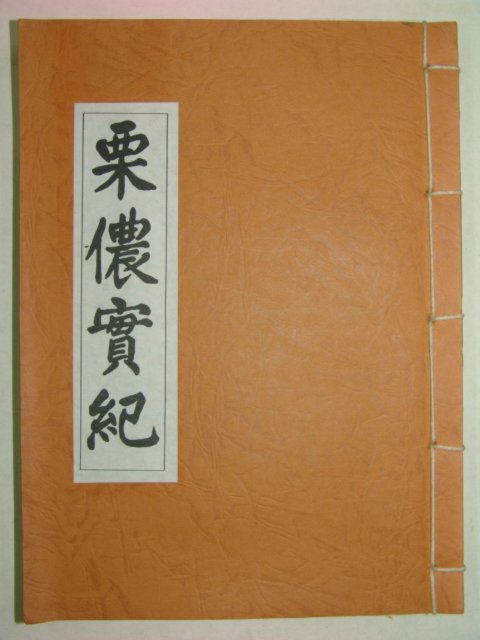 栗儂實紀